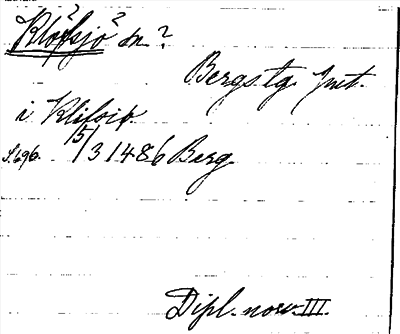 Klöfsjö sn?
Bergs tg. Jmt.
i Klifsio
S. 696. 15/3 1486 Berg
Dipl. norv. III.